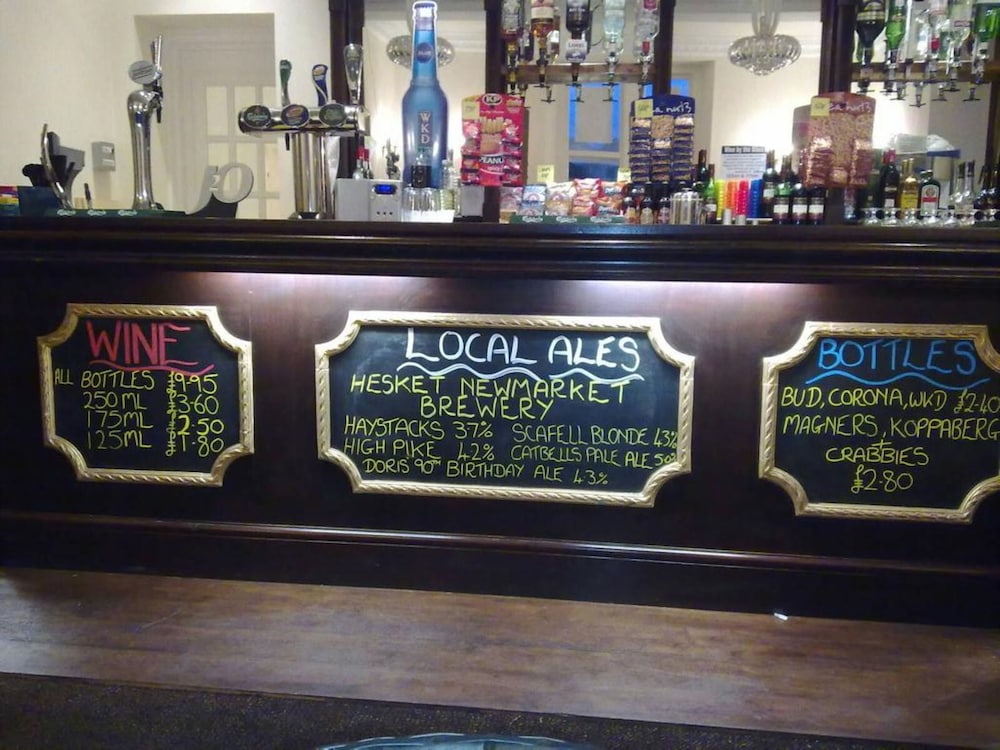 WKD
KP
PEANU
WINE
ALL BOTTLES £9.95
250ML £3.60
175ML £2.50
125ML £1.80
LOCAL ALES
HESKET NEWMARKET
BREWERY
HAYSTACKS 37% SCAFELL BLONDE 43%
HIGH PIKE 42% CATBELLS PALE ALE 50%
DORIS 90TH BIRTHDAY ALE 4.3%
BOTTLES
BUD, CORONA, WKD £2.40
MAGNERS, KOPPABERG
+
CRABBIES
£2.80